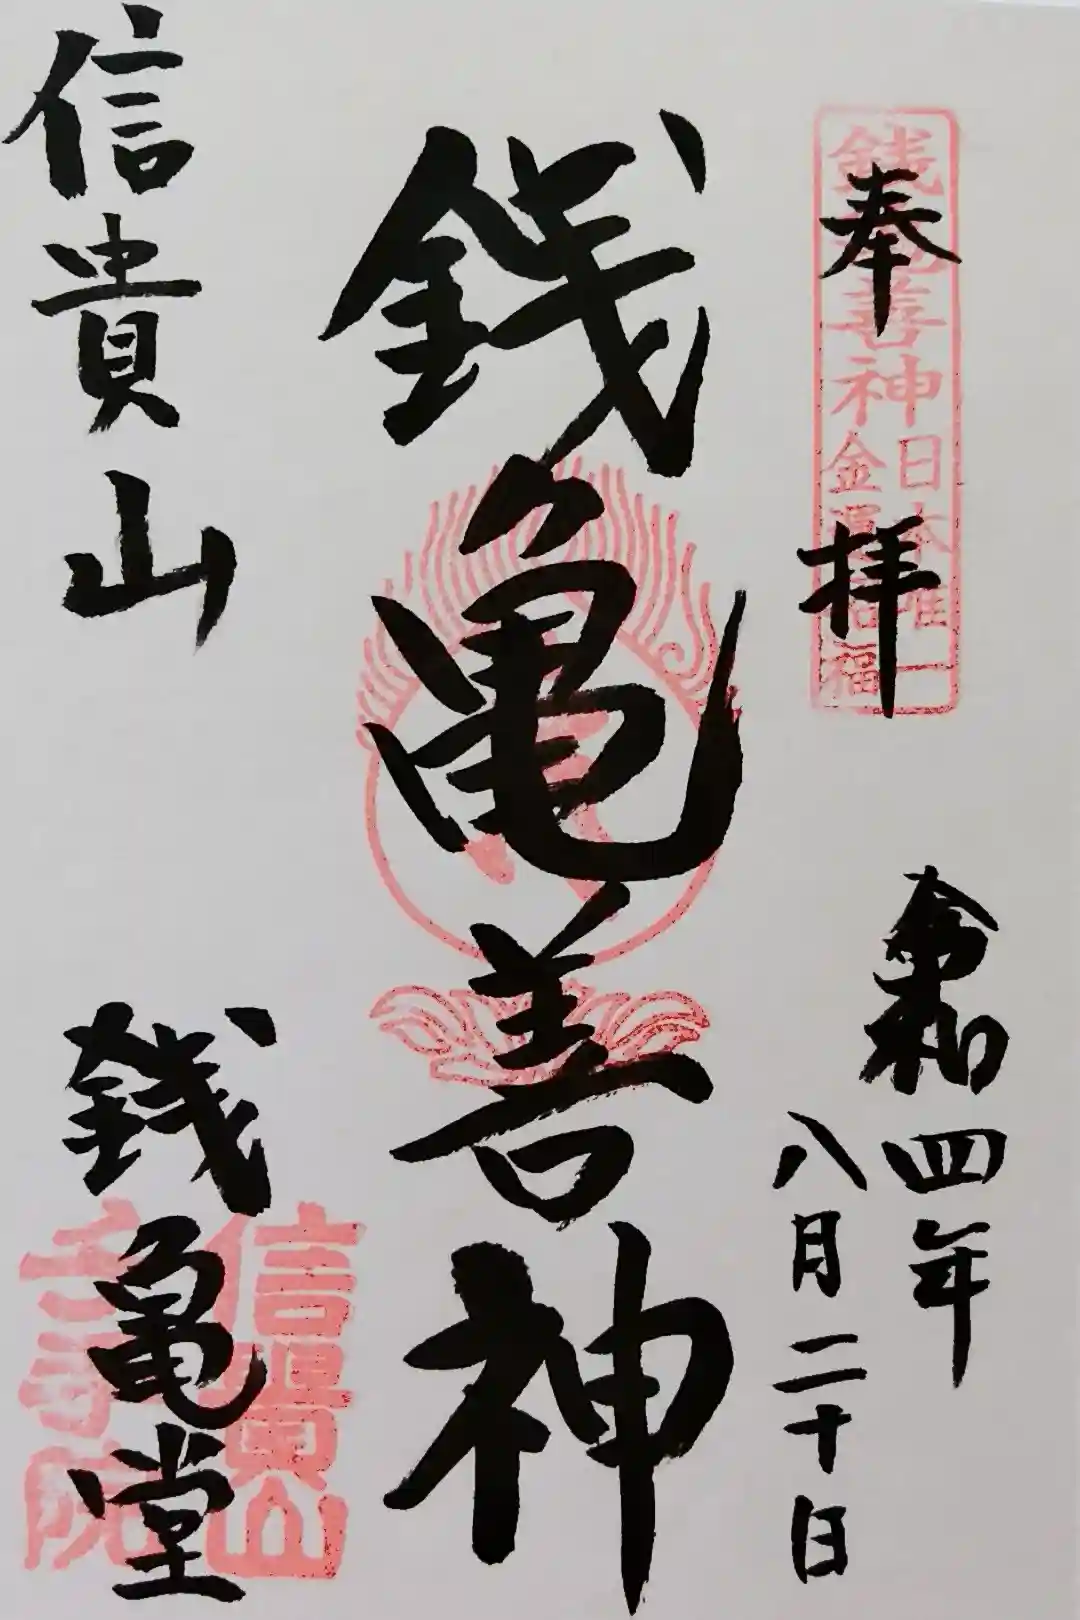 奉拝
銭亀善神
日本唯一
金運招福
令和四年
八月二十日
銭亀善神
信貴山
銭亀堂
信貴山
千手院